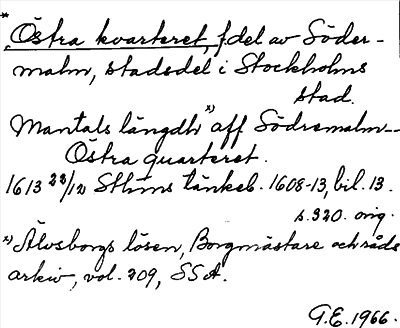 *
Östra kvarteret, f. del av Söder-
malm, stadsdel i Stockholms
stad.
Mantals längdh *) aff Södremalm—
Östra quarteret.
1613 22/12 Sthlms tänkeb. 1608-13, bil. 13.
s. 320. orig.
*) Älvsborgs lösen, Borgmästare och råds
arkiv, vol. 209, SSA.
G.E. 1966.